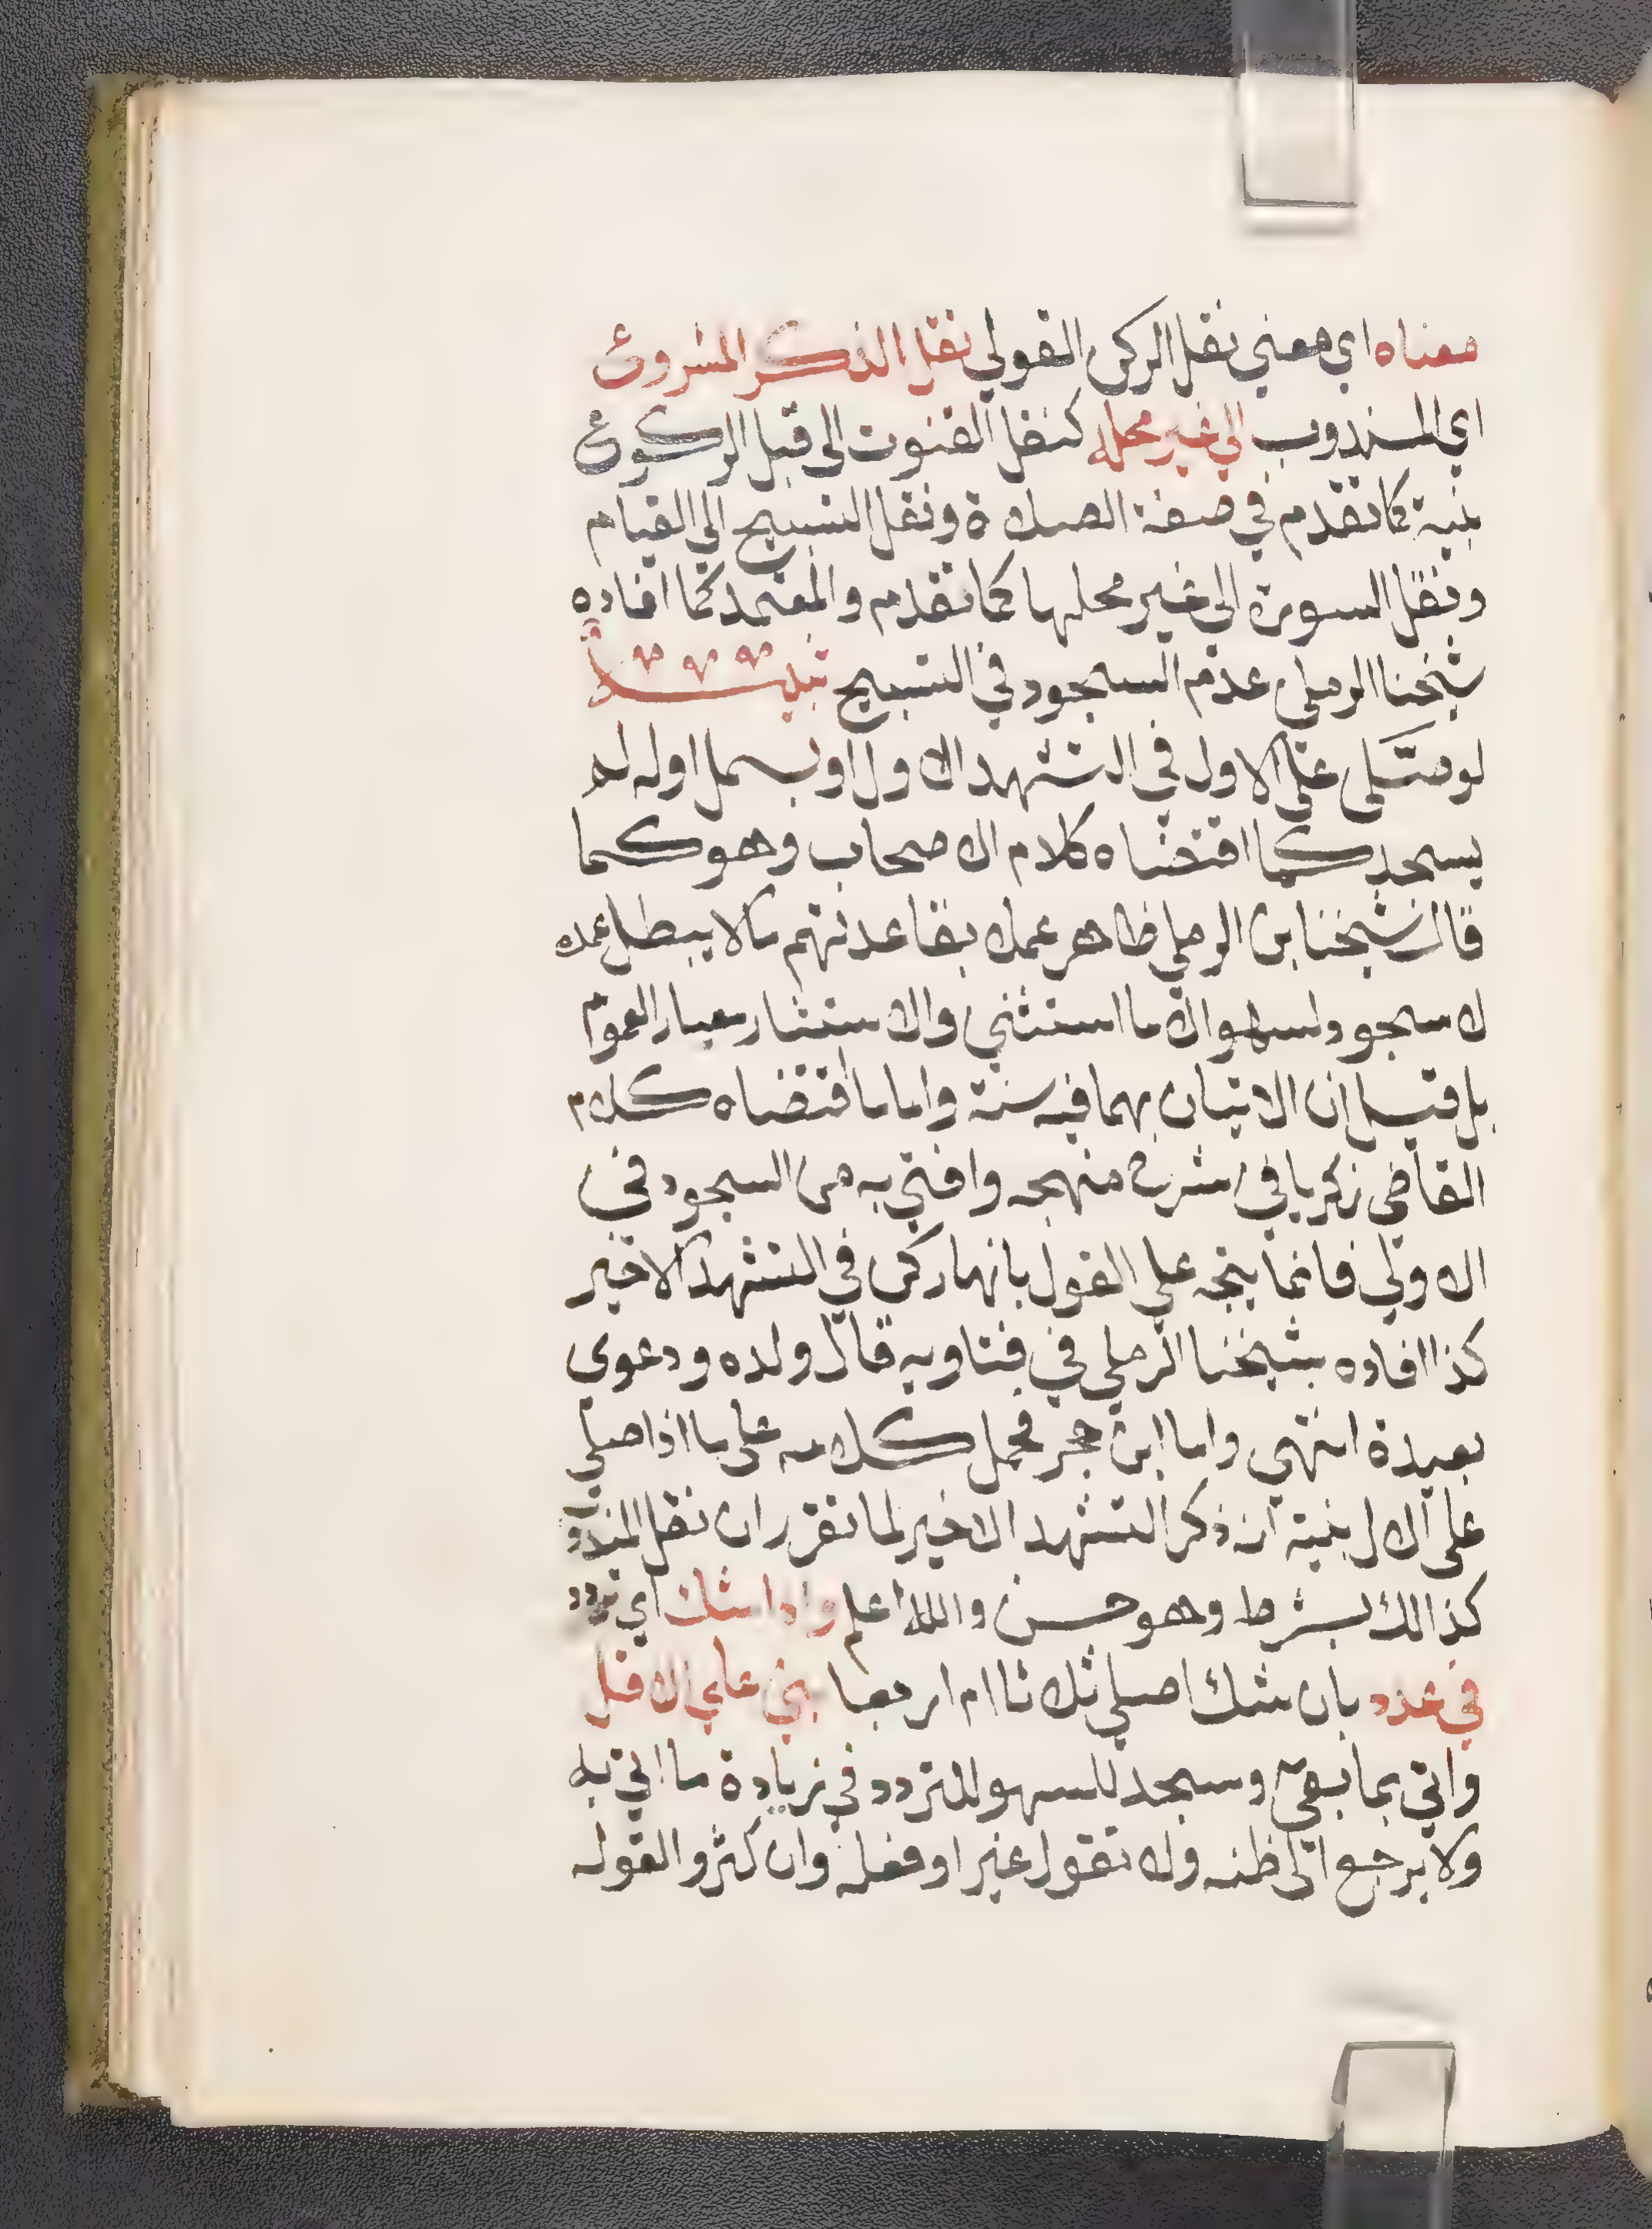 معناه اي معني نقل الركن القولي نقل الذكر المشروع
اي المندوب الي غير محله كنقل القنوت الى قبل الركوع
بنية كما تقدم في صفة الصلاة ونقل التسبيح الي القيام
ونقل السورة الي غير محلها كما تقدم والمعتمد كما افاده
شيخنا الرملي عدم السجود في التسبيح
لو صلى على الاول في التشهد الاول او بسمل اوله لم
يسجد كما اقتضاه كلام الاصحاب وهو كما
قال شيخنا ابن الرملي ظاهر عملا بقاعدتهم ما لا يبطل عمده
لا سجود لسهوه الا ما استثني والاستثنا معيار العموم
بل قيل ان الاتيان بهما فيه سنة واما ما اقتضاه كلام
القاضي زكريا في شرح منهجه وافتي به من السجود في
الاولي فانما يتجه علي القول بانها ركن في التشهد الاخير
كذا افاده شيخنا الرملي في فتاويه قال ولده ودعوى
بعيدة انتهي واما ابن حجر فحمل كلامه على ما اذا صلي
على الال بنية ان ذكر التشهد الاخير لما تقرر ان نقل المندو
كذالك بشرط وهو حسن والله اعلم واذا شك اي تردد
في عدد بان شك اصلي ثلاثا ام اربعا بني علي الاقل
واتي بما بقي وسجد للسهو للتردد في زيادة ما اتي به
ولا يرجع الى ظنه ولا لقول غيره او فعله وان كثروا لقوله